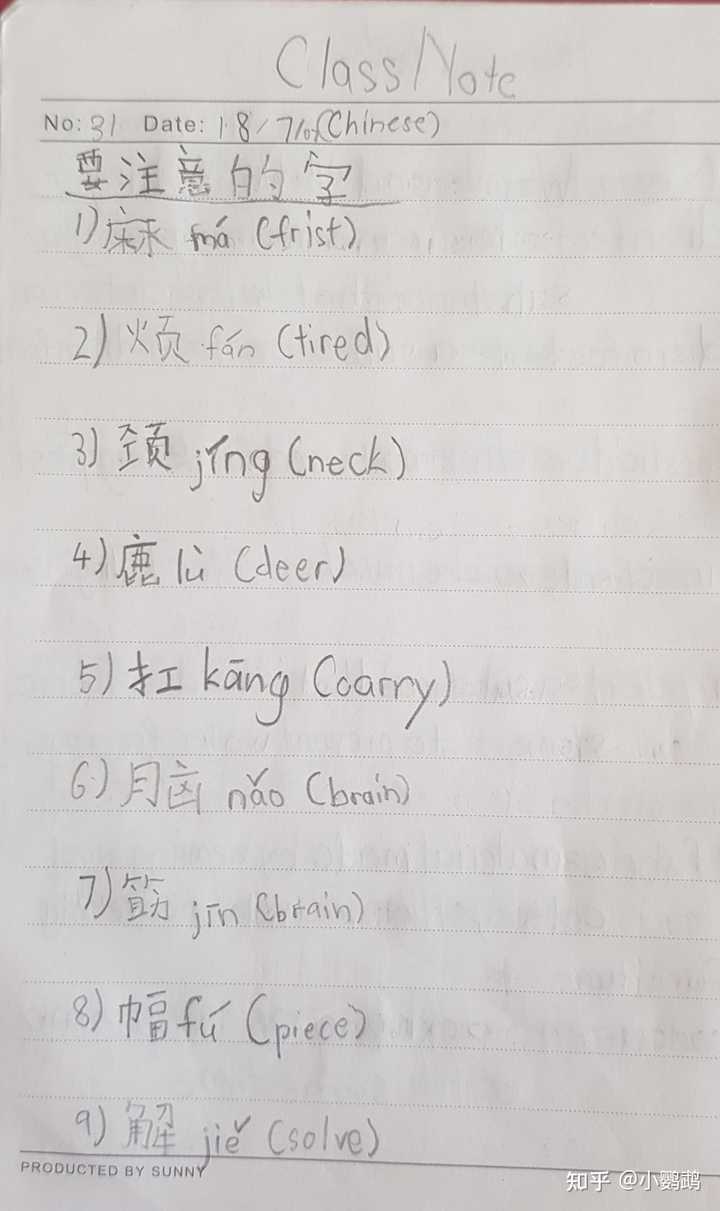 Class Note
No: 31 Date: 18/7/6.(Chinese)
要注意的字
1) 麻 má (frist)
2) 烦 fán (tired)
3) 颈 jǐng (neck)
4) 鹿 lù (deer)
5) 扛 kāng (carry)
6) 脑 nǎo (brain)
7) 筋 jīn (brain)
8) 幅 fú (piece)
9) 解 jiě (solve)
PRODUCED BY SUNNY
知乎 @小鹦鹉